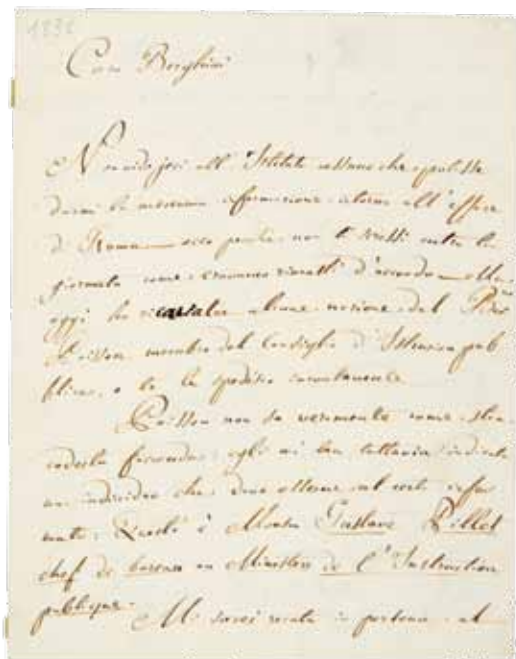 1832
Caro Borghini
Non vidi jeri all' Istituto nessuno che potesse
darmi la menoma informazione intorno all' affare
di Roma ecco perché non ti scrissi entro la
giornata come eravamo rimasti d'accordo
oggi ho ricavato alcune notizie dal
Poisson membro del Consiglio d' Istruzione pub
blica, e te le spedisco
Poisson non sa veramente come
egli mi ha tuttavia indicato
un individuo che deve esserne
Questi è Monsr Gustave Pillet
chef de bureau au Ministère de l'Instruction
publique. Mi sarei recato in persona al